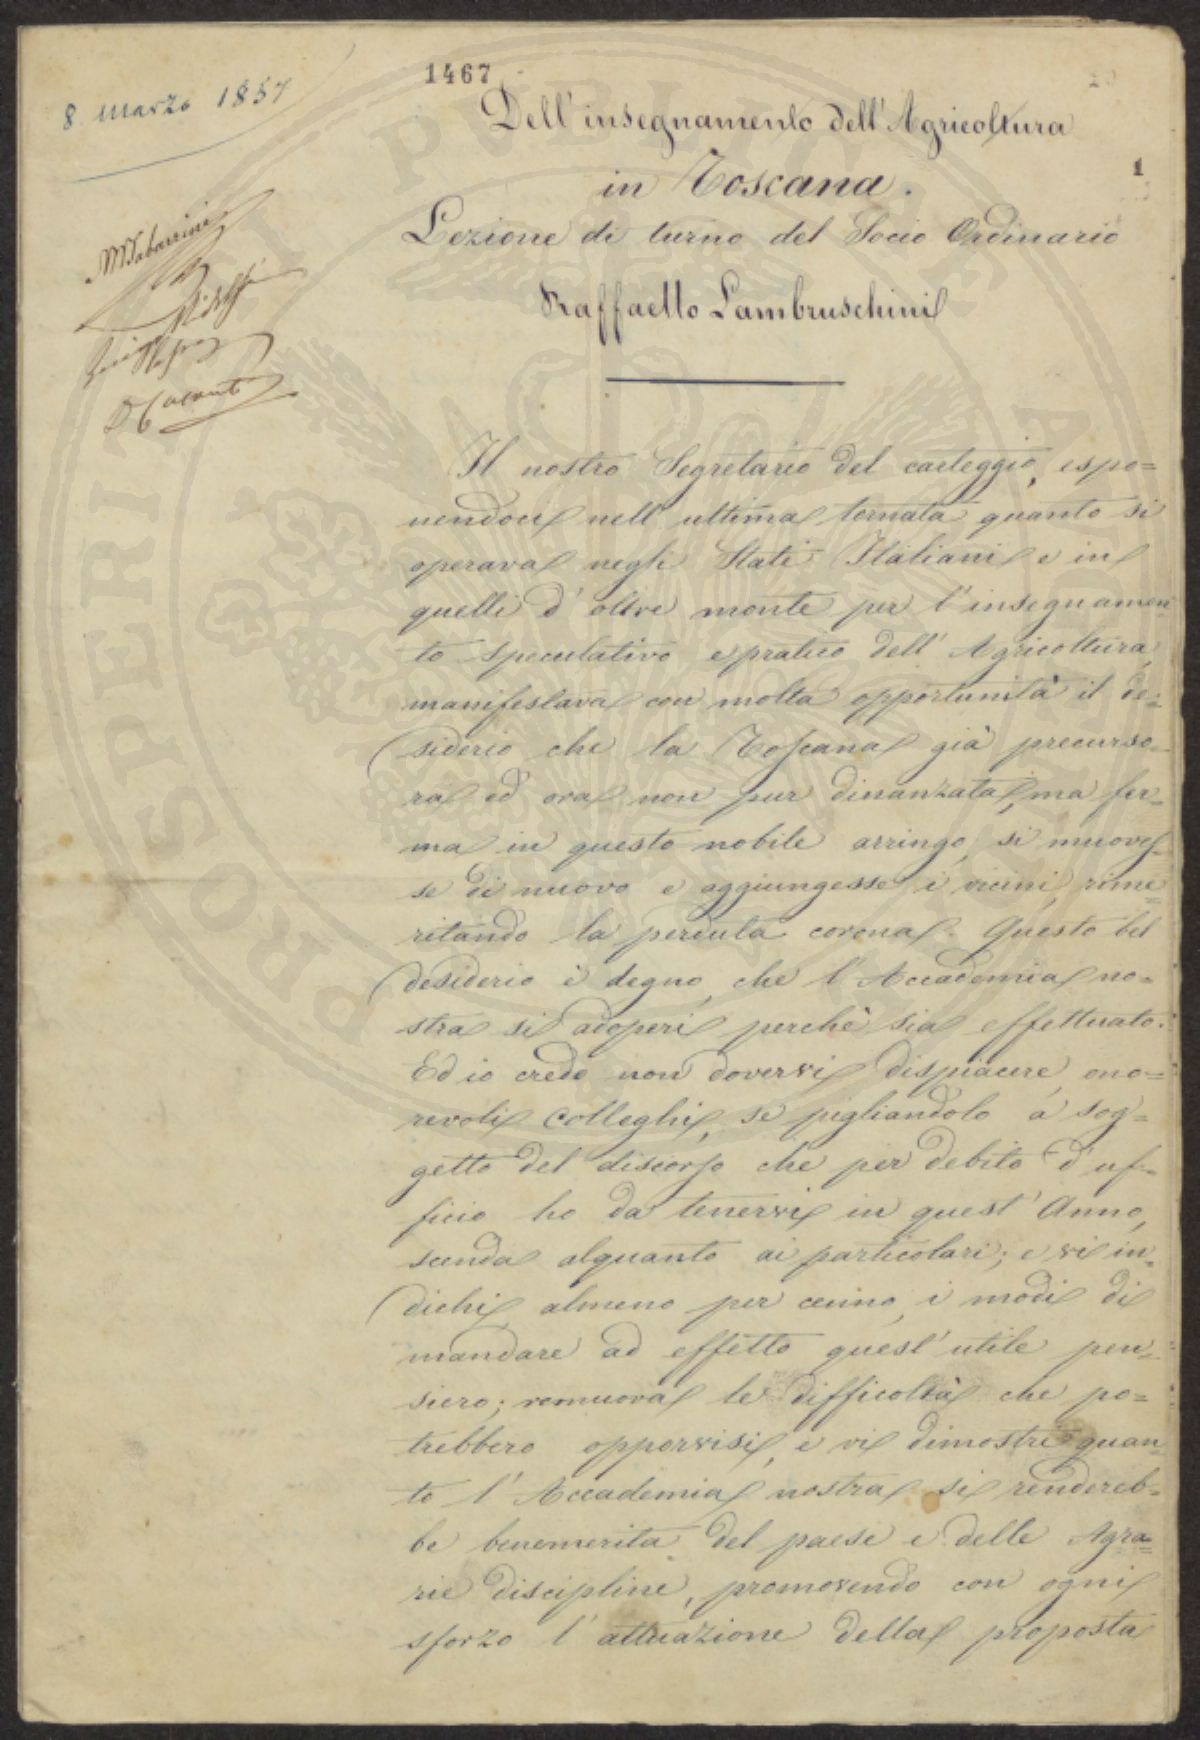 8. Marzo 1857
1467
Dell'insegnamento dell'Agricoltura
in Toscana.
1
Lezione di turno del Socio Ordinario
Raffaello Lambruschini
MTabarrini
Il nostro Segretario del carteggio, espo=
nendoci nell'ultima tornata quanto si
operava negli Stati Italiani e in
quelli d'oltre monte per l'insegnamen
to speculativo e pratico dell'Agricoltura,
manifestava con molta opportunità il de=
siderio che la Toscana già precurso=
ra ed ora non pur dinanzata, ma fer=
ma in questo nobile arringo, si moves=
se di nuovo e aggiungesse i vicini, rime
ritando la perduta corona. Questo bel
desiderio è degno, che l'Accademia no=
stra si adoperi perchè sia effettuato.
Ed io credo non dovervi dispiacere, ono=
revoli Colleghi, se pigliandolo a sog=
getto del discorso che per debito d'uf=
ficio ho da tenervi in quest'Anno,
scenda alquanto ai particolari; e vi in=
dichi, almeno per cenno, i modi di
mandare ad effetto quest'utile pen=
siero; remuova le difficoltà che po=
trebbero opporvisi, e vi dimostri quan
to l'Accademia nostra si rendereb=
be benemerita del paese e delle Agra=
rie discipline, promovendo con ogni
sforzo l'attuazione della proposta
PROSPERITATI PUBLICAE AUGENDAE